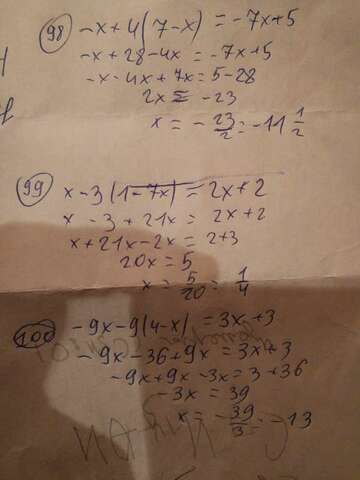 98) -x+4(7-x)=-7x+5
-x+28-4x=-7x+5
-x-4x+7x=5-28
2x=-23
x=-23/2=-11 1/2
99) x-3(1-7x)=2x+2
x-3+21x=2x+2
x+21x-2x=2+3
20x=5
x=5/20=1/4
100) -9x-9(4-x)=3x+3
-9x-36+9x=3x+3
-9x+9x-3x=3+36
-3x=39
x=-39/3=-13